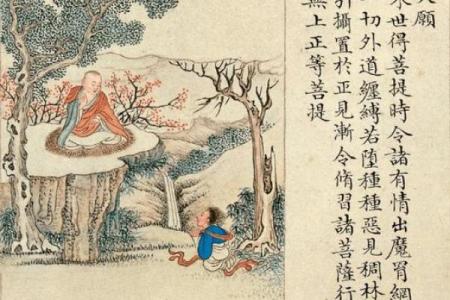 大願
來世得菩提時令諸有情出魔罥網
切外道纏縛若墮種種惡見稠林
引攝置於正見漸令脩習諸菩薩行
無上正等菩提